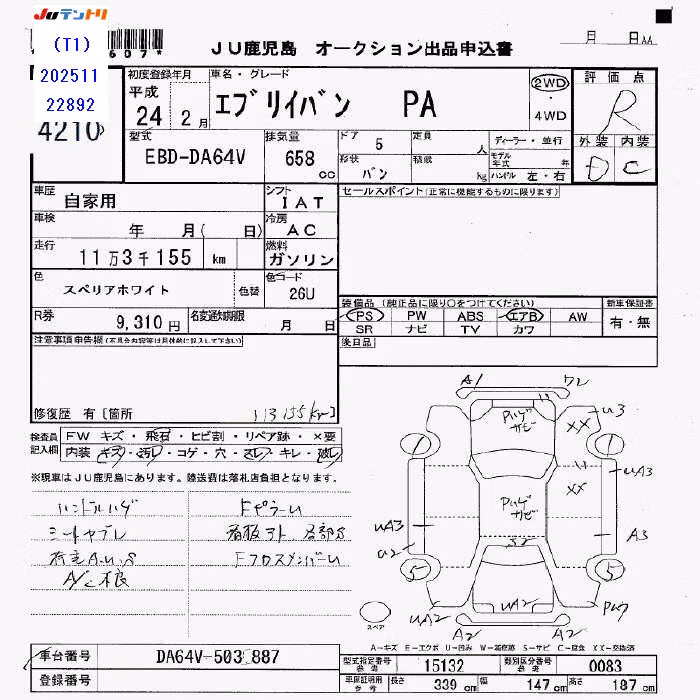 JUテントリ
(T1)
202511
22892
4210
607*
JU鹿児島 オークション出品申込書
月 日
初度登録年月
平成
24 2月
車名・グレード
エブリイバン PA
2WD
・
4WD
評価点
R
外装 内装
D C
型式
EBD-DA64V
排気量
658 cc
ドア 5
形状 バン
定員 人
積載 kg
ディーラー・並行
モデル年式 年
ハンドル 左・右
車歴 自家用
シフト IAT
セールスポイント(正常に機能するものに限ります)
車検 年 月( 日)
冷房 AC
走行 11万3千155 km
燃料 ガソリン
色 スペリアホワイト
色替
色コード 26U
装備品(純正品に限り○をつけてください)
新車保証書
有・無
PS PW ABS エアB AW
SR ナビ TV カワ
R券 9,310円
名変通知期限 月 日
注意事項申告欄(不具合内容等は具体的に記入して下さい)
後日品
修復歴 有[箇所 113155km]
検査員記入欄
FW キズ・飛石・ヒビ割・リペア跡・×要
内装 キズ・汚レ・コゲ・穴・スレ・キレ・破レ
※現車はJU鹿児島にあります。陸送費は落札店負担となります。
ハンドルハゲ
シートヤブレ
A/C不良
FピラーU
看板アト 各部S
FクロスメンバーU
A1
U3
XX
XX
UA3
UA3
A3
U2
UA2
UA2
A2
A2
S2
PUゲ
サビ
PUゲ
サビ
1
1
5
5
スペア
A-キズ E-エクボ U-凹み W-補修跡 S-サビ C-腐食 XX-交換済
車台番号 DA64V-503887
登録番号
型式指定番号 参考 15132
類別区分番号 参考 0083
車庫証明用 参考
長さ 339 cm
幅 147 cm
高さ 187 cm